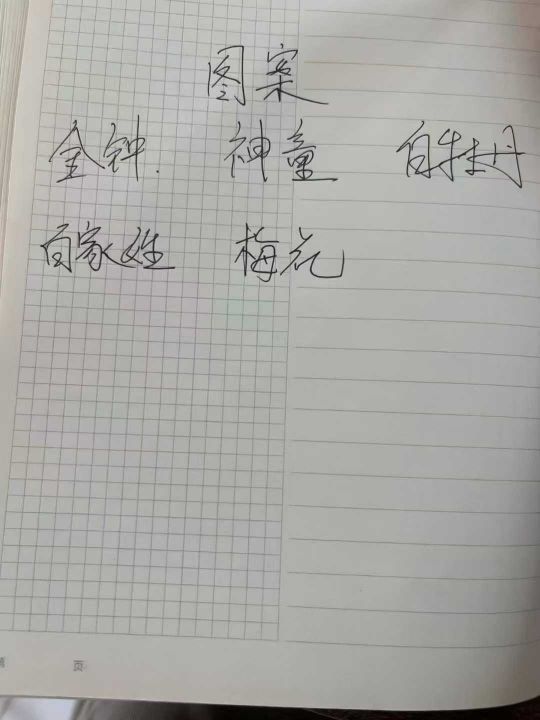 图案
金钟. 神童 白牡丹
百家姓 梅花
页